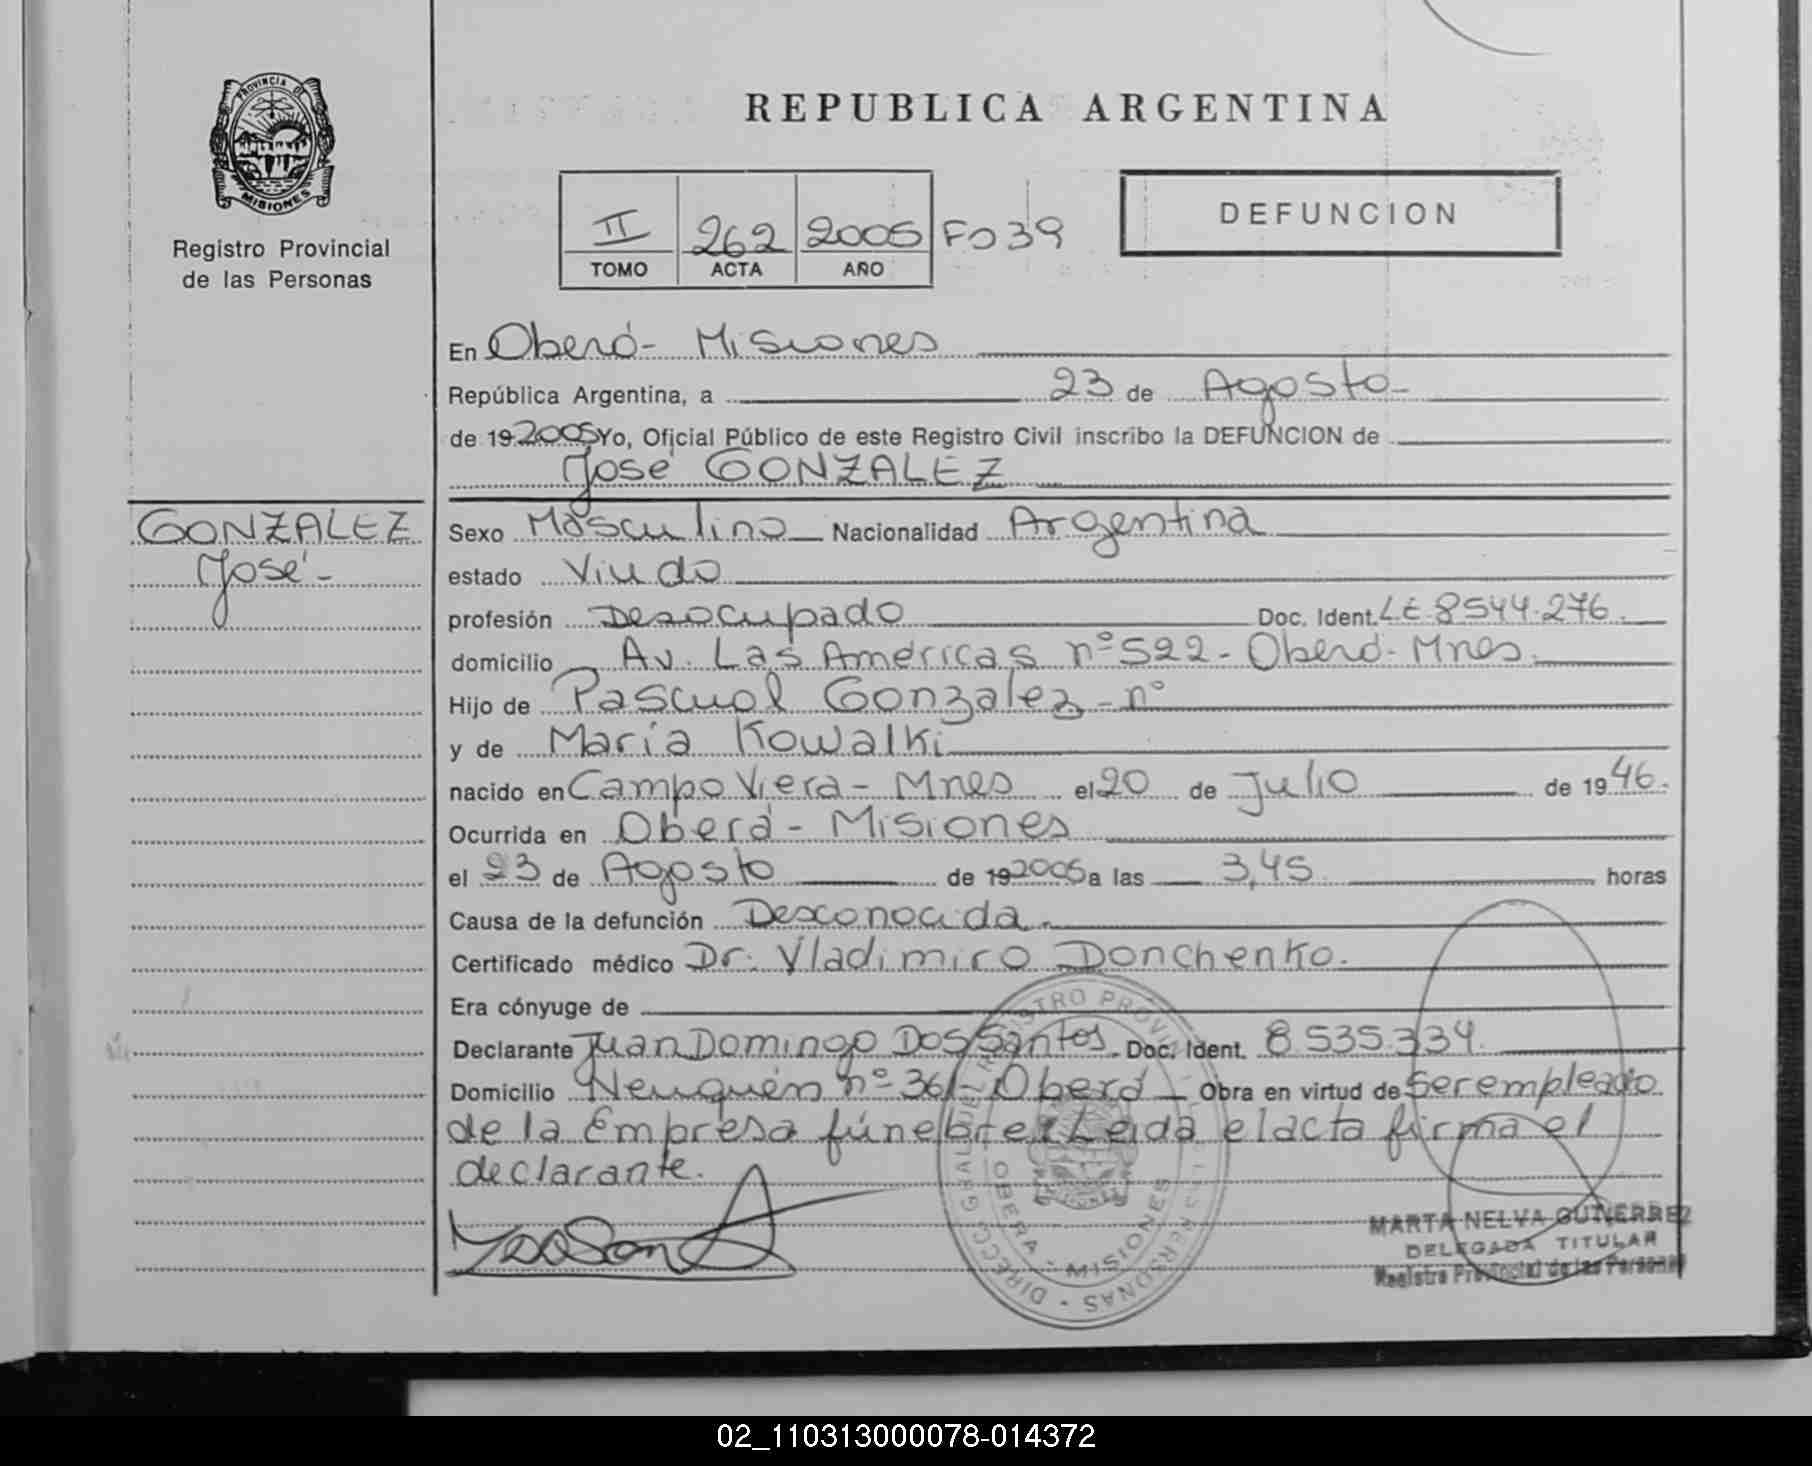 PROVINCIA DE
MISIONES
Registro Provincial
de las Personas
REPUBLICA ARGENTINA
II 262 2005 Fo 39
TOMO ACTA AÑO
DEFUNCION
En Oberá- Misiones
República Argentina, a 23 de Agosto-
de 19 2005 Yo, Oficial Público de este Registro Civil inscribo la DEFUNCION de
José GONZALEZ
GONZALEZ
José-
Sexo Masculino Nacionalidad Argentina
estado Viudo
profesión Desocupado Doc. Ident. LE 8544.276.
domicilio Av. Las Américas nº 522- Oberá- Mnes.
Hijo de Pascual Gonzalez - nº
y de María Kowalki
nacido en Campo Viera- Mnes el 20 de Julio de 19 46.
Ocurrida en Oberá- Misiones
el 23 de Agosto de 19 2005 a las 3,45 horas
Causa de la defunción Desconocida.
Certificado médico Dr. Vladimiro Donchenko.
Era cónyuge de
Declarante Juan Domingo Dos Santos. Doc. Ident. 8.535.334.
Domicilio Neuquén nº 361- Oberá Obra en virtud de Ser empleado
de la Empresa fúnebre. Leida el acta firma el
declarante.
OBERA - MISIONES
MARTA NELVA GUTIERREZ
DELEGADA TITULAR
Registro Provincial de las Personas
02_110313000078-014372